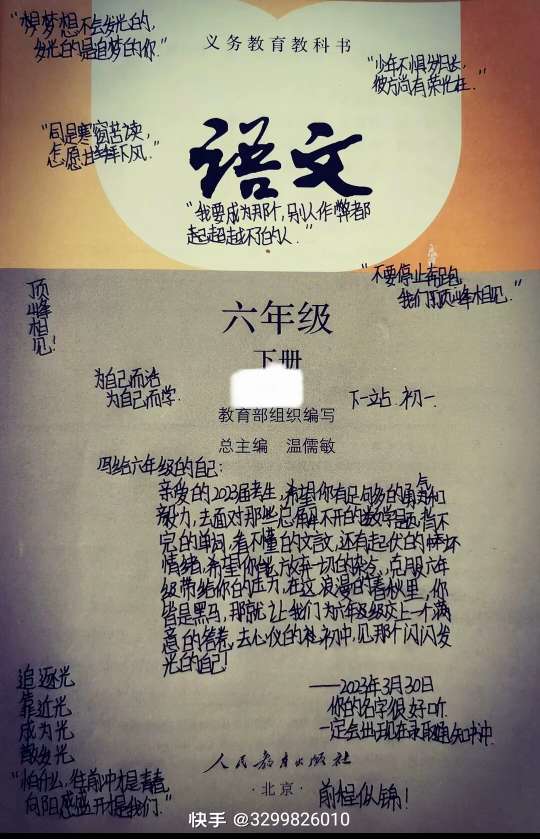 “想梦想不会发光的,
发光的是追梦的你.”
义务教育教科书
“少年不惧岁月长,
彼方尚有荣光在.”
“同是寒窗苦读,
怎愿甘拜下风.”
语文
“我要成为那个,别人作弊都
起超越不了的人.”
“不要停止奔跑
我们顶峰相见.”
顶峰相见!
六年级
下册
为自己而活
为自己而学.
下一站 初一.
教育部组织编写
总主编 温儒敏
写给六年级的自己:
亲爱的2023届考生,希望你有足够的勇气和
毅力,去面对那些总解不开的数学题,背不
完的单词,看不懂的文言文,还有起伏的坏
情绪,希望你能放弃一切的杂念,克服六年
级带给你的压力,在这浪漫的春秋里,你
皆是黑马,那就让我们为六年级交上一个满
意的答卷,去心仪的初中,见那个闪闪发
光的自己!
——2023年3月30日
你的名字很好听
一定会出现在录取通知书中.
追逐光
靠近光
成为光
散发光
“怕什么,往前冲才是青春,
向阳盛开才是我们.”
人民教育出版社
·北京·
前程似锦!
快手 @3299826010